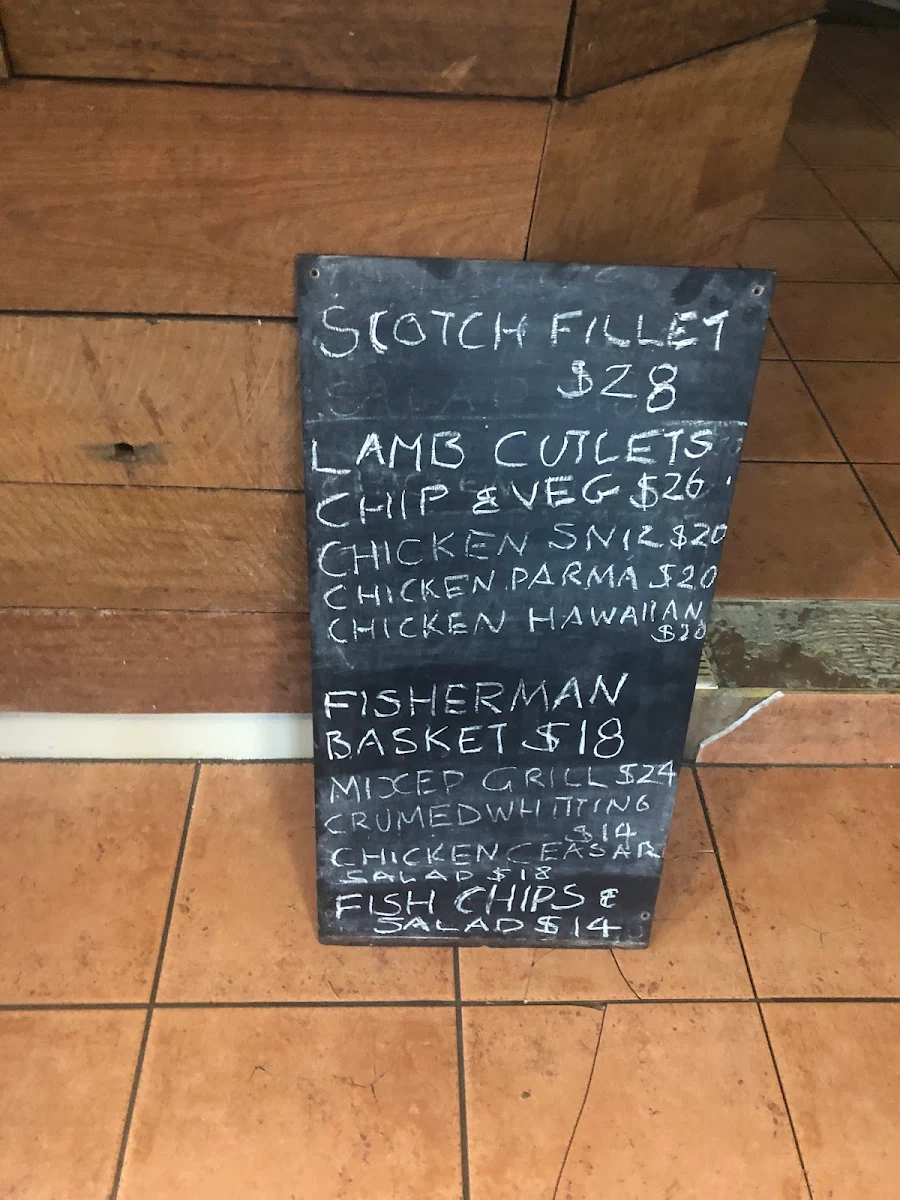 SCOTCH FILLET
$28
LAMB CUTLETS
CHIP & VEG $26
CHICKEN SNIZ $20
CHICKEN PARMA $20
CHICKEN HAWAIIAN
$20
FISHERMAN
BASKET $18
MIXED GRILL $24
CRUMED WHITTING
$14
CHICKEN CEASAR
SALAD $18
FISH CHIPS &
SALAD $14